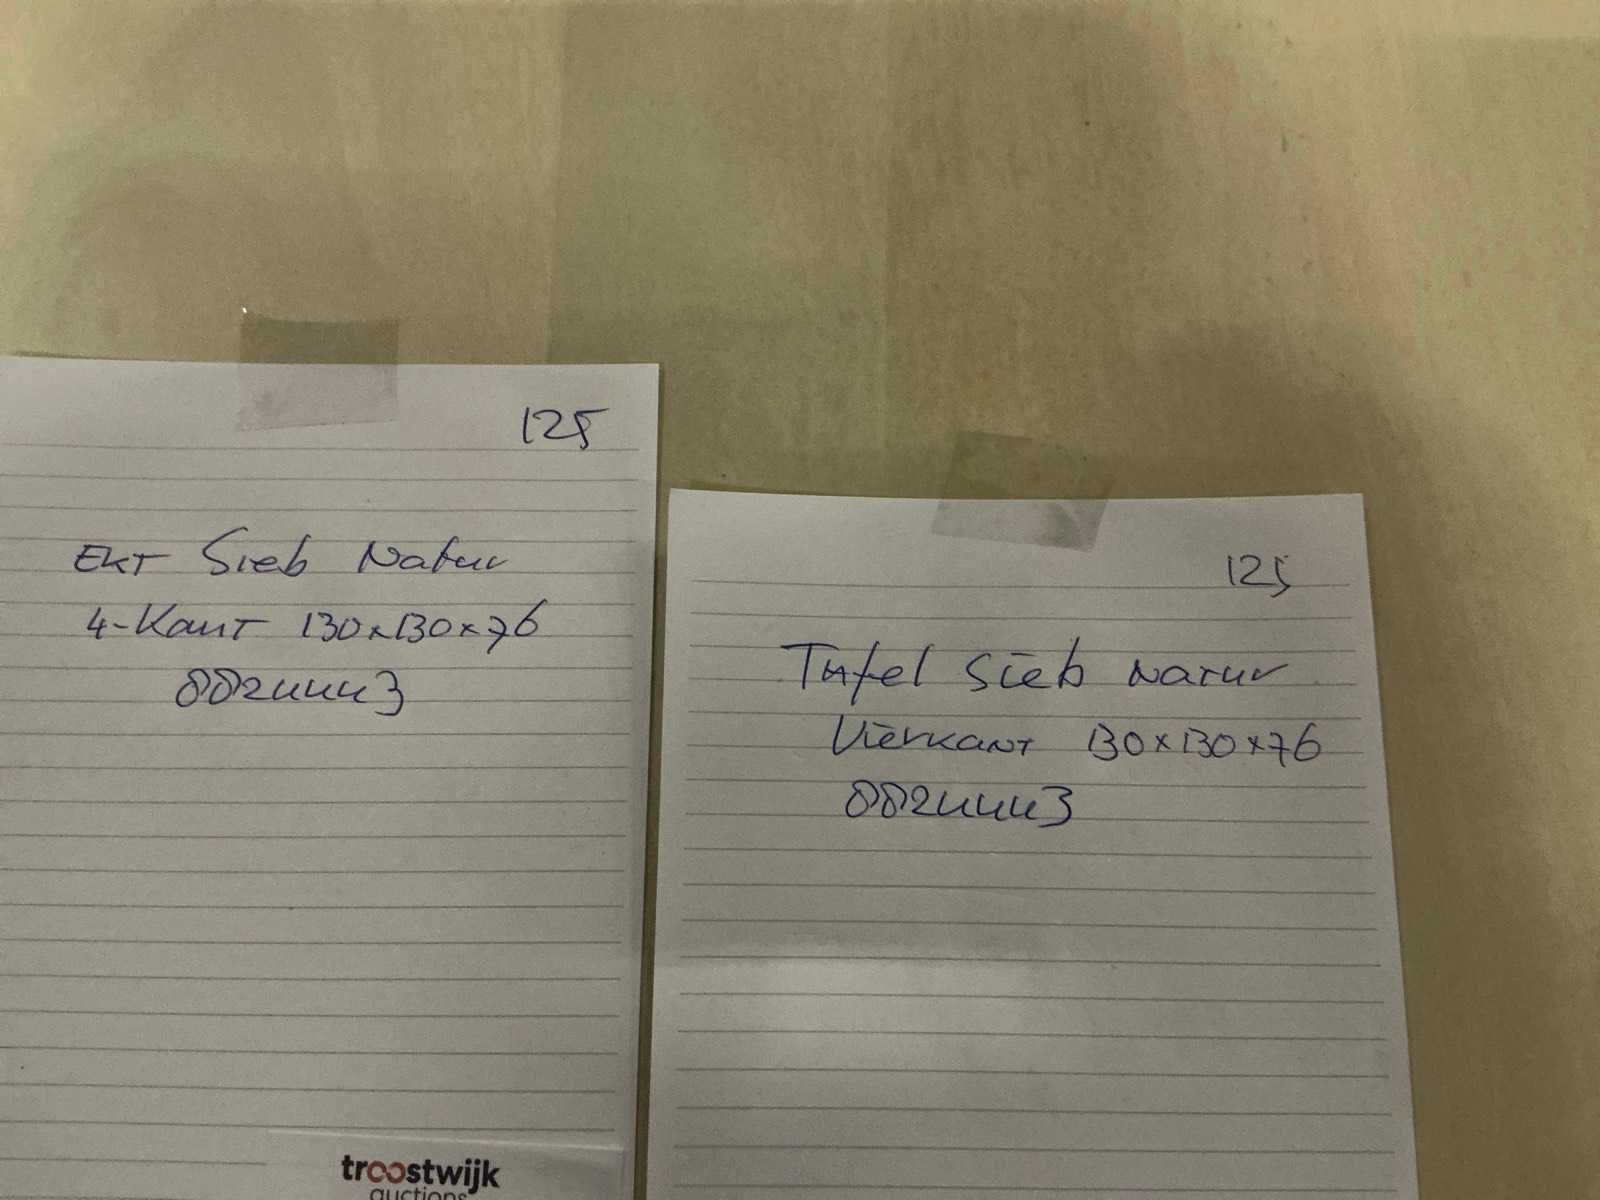 125
EKT Sieb Natur
4-Kant 130x130x76
8824443
troostwijk
auctions
125
Tafel Sieb Natur
Vierkant 130x130x76
8824443